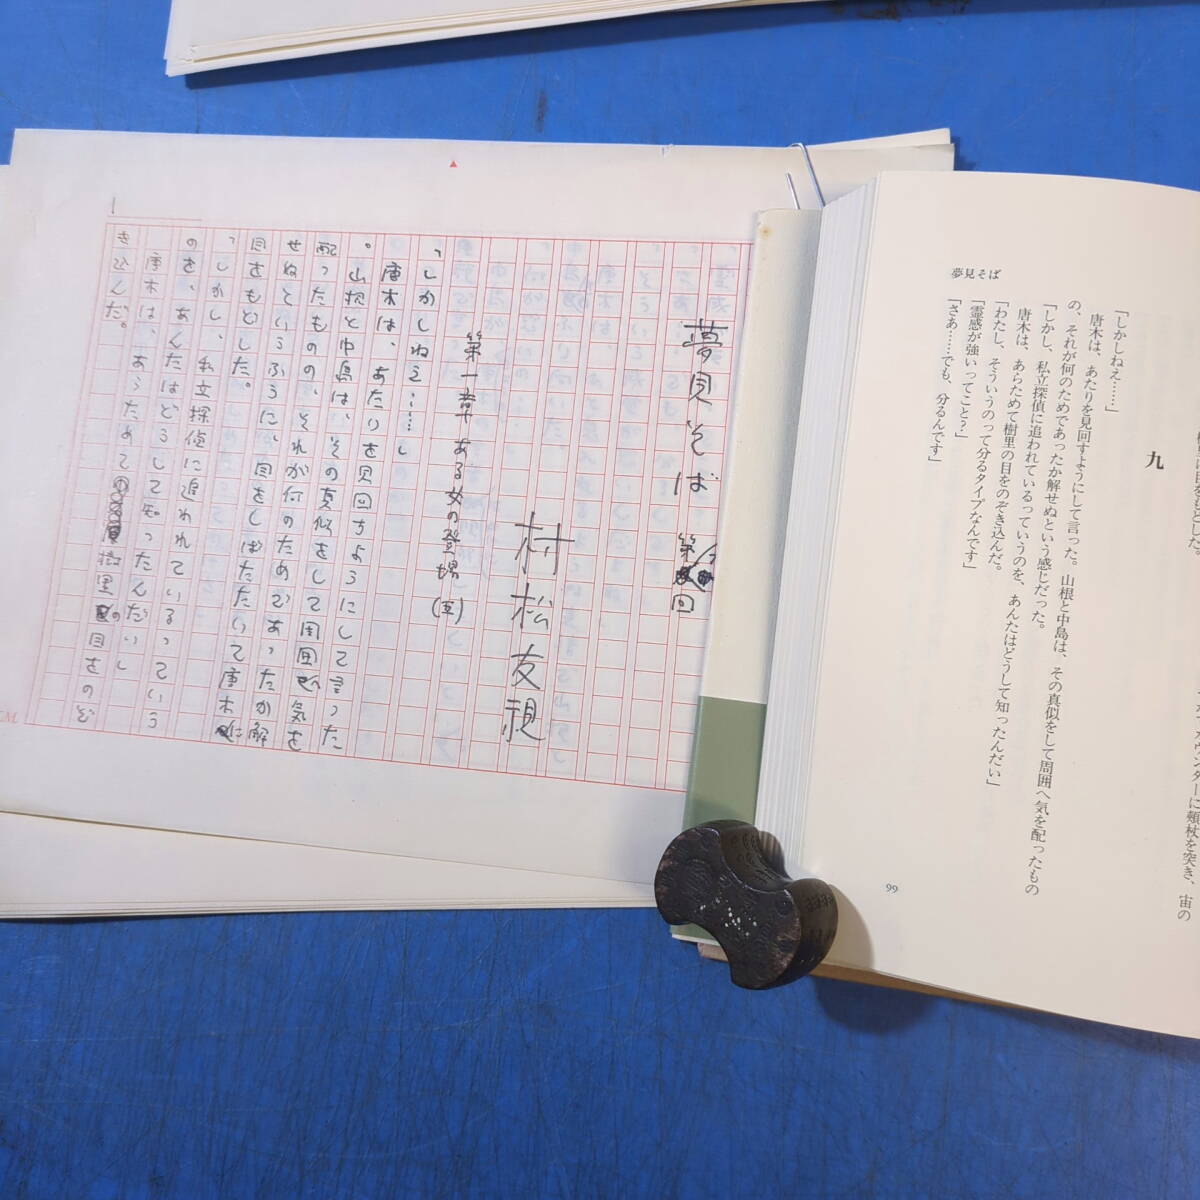 夢見そば 第 回
村松友視
第一章 ある女の登場(五)
「しかしねえ……」
唐木は、あたりを見回すようにして言った
。山根と中島は、その真似をして周囲へ気を
配ったものの、それが何のためであったか解
せぬというふうに、目をしばたたいて唐木に
目をもどした。
「しかし、私立探偵に追われているっていう
のを、あんたはどうして知ったんだい」
唐木は、あらためて樹里の目をのぞ
き込んだ。
1
九
「しかしねえ……」
唐木は、あたりを見回すようにして言った。山根と中島は、その真似をして周囲へ気を配ったもの
の、それが何のためであったか解せぬという感じだった。
「しかし、私立探偵に追われているっていうのを、あんたはどうして知ったんだい」
唐木は、あらためて樹里の目をのぞき込んだ。
「わたし、そういうのって分るタイプなんです」
「霊感が強いってこと?」
「さあ……でも、分るんです」
夢見そば
99